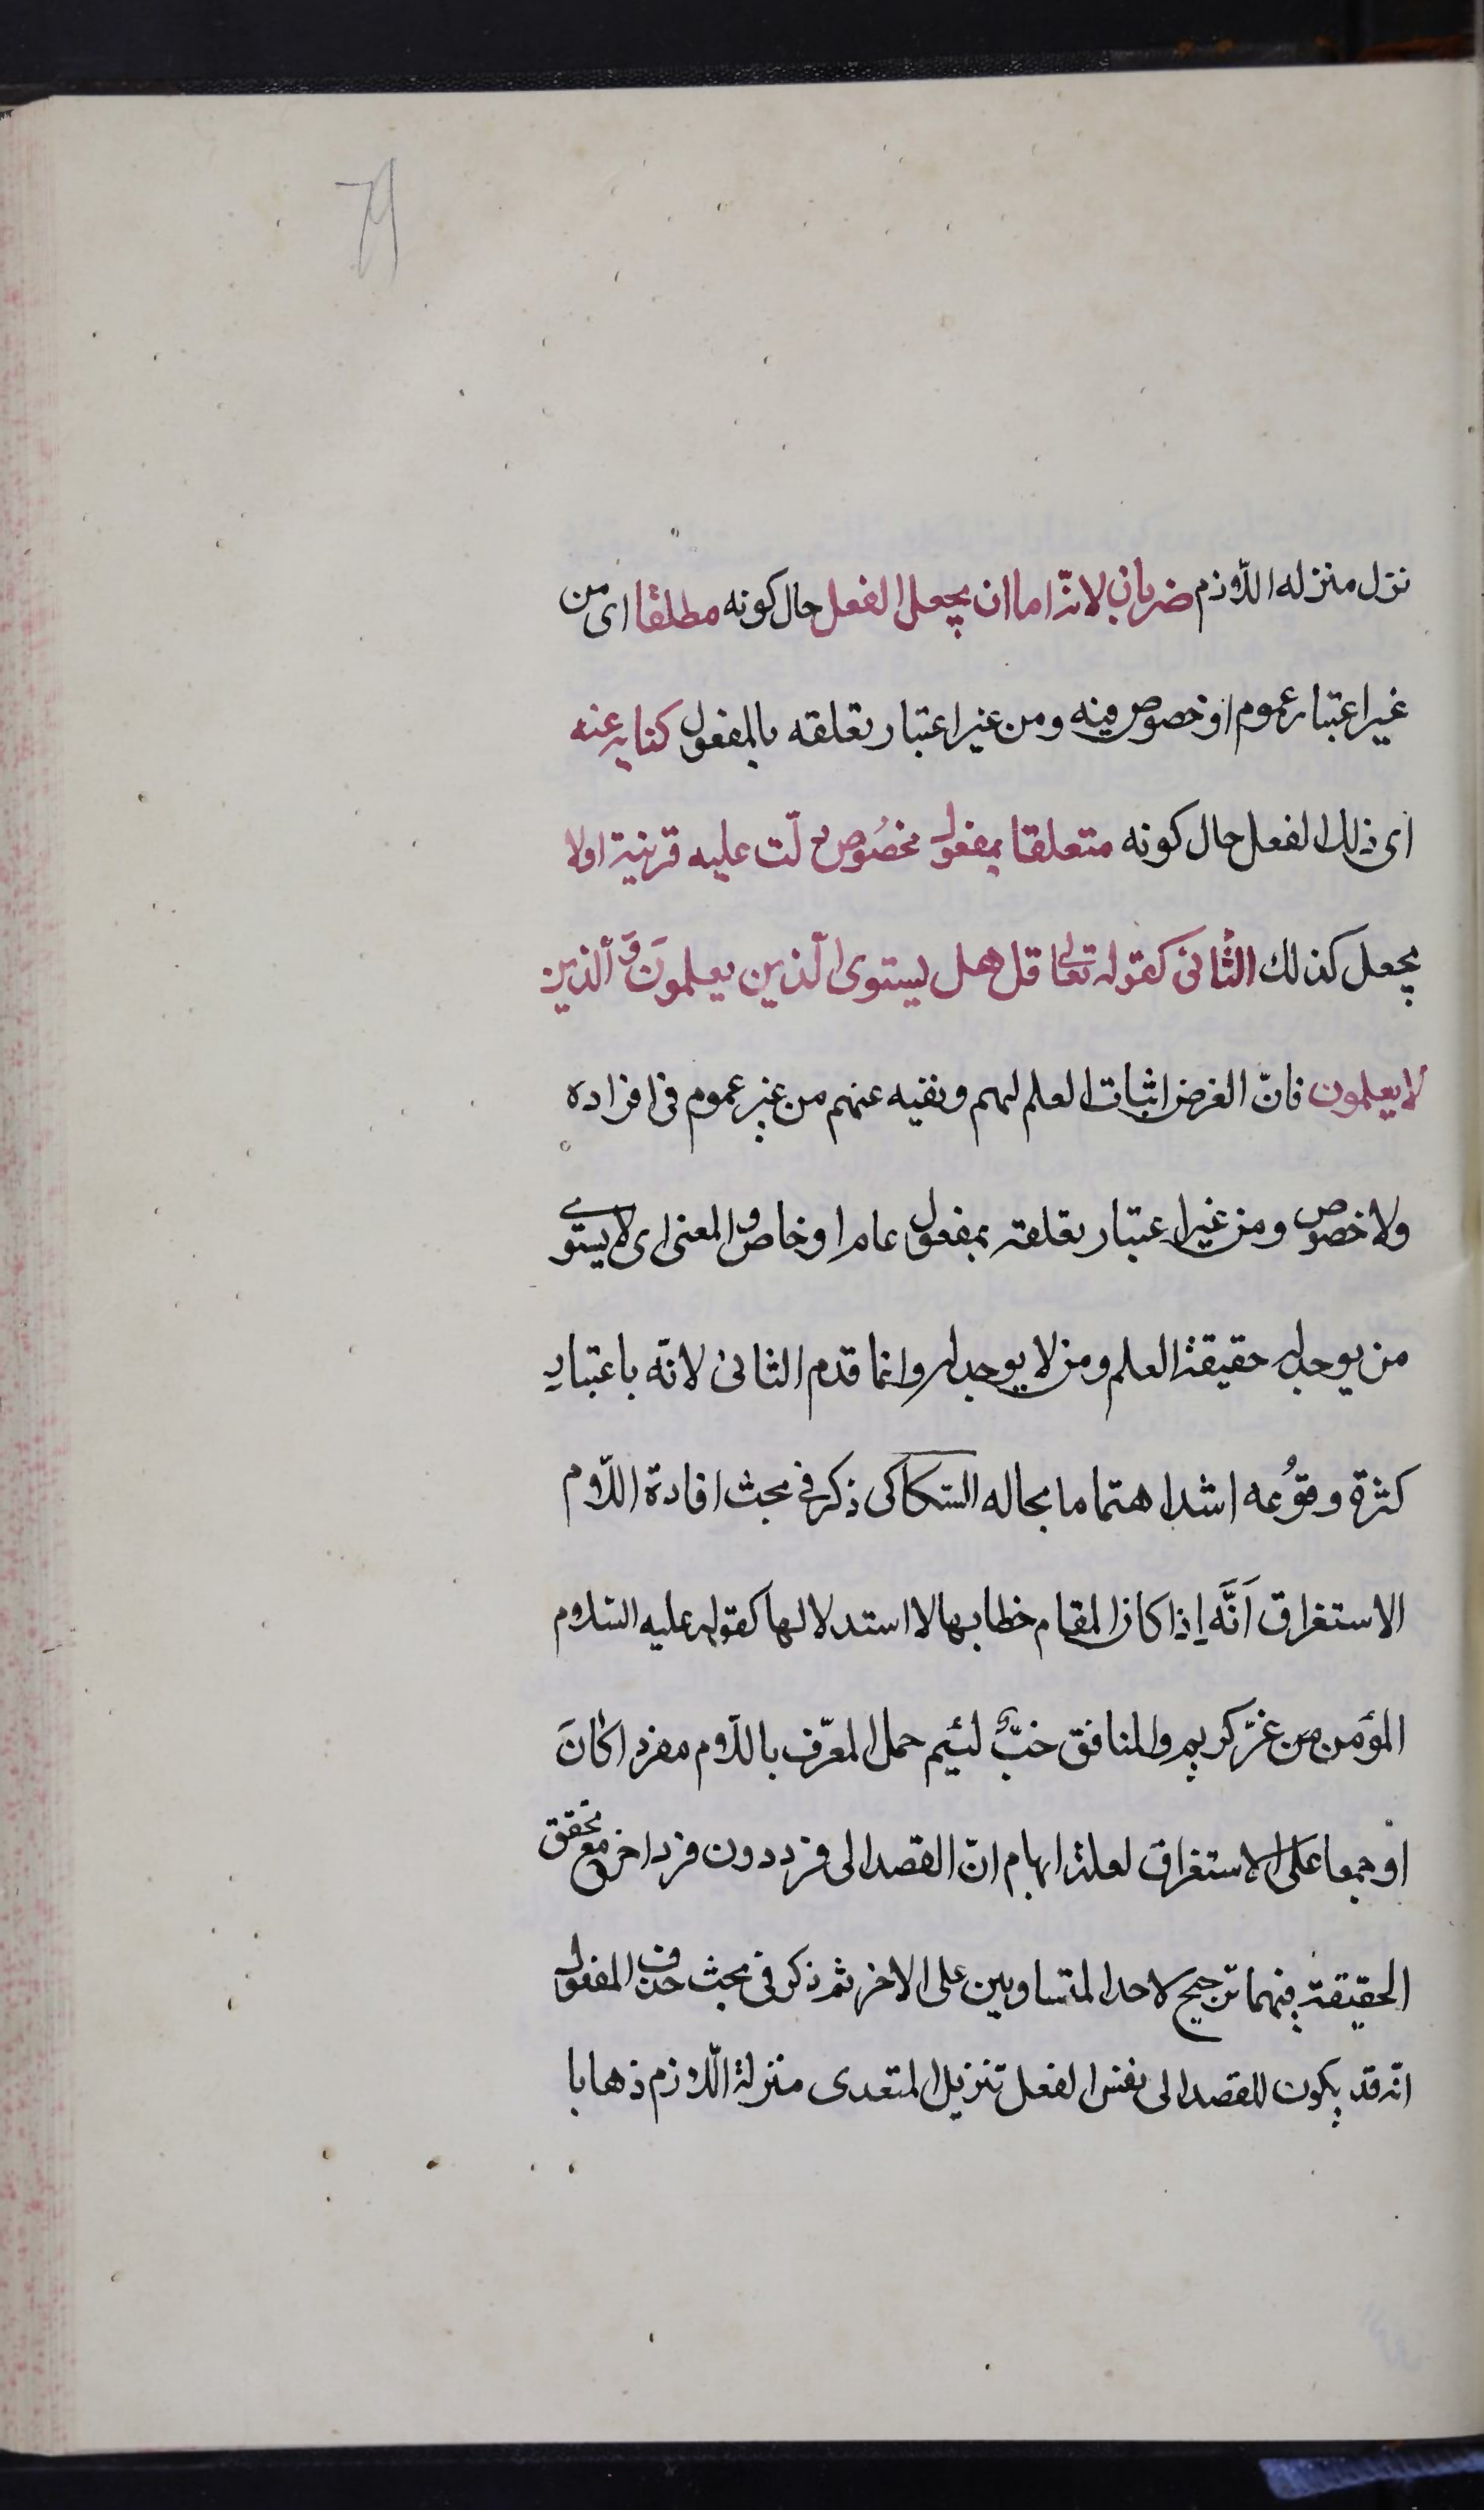 79
نزل منزله اللّازم ضربان لانّه اما ان يجعل الفعل حال كونه مطلقا اى من
غير اعتبار عموم او خصوص فيه ومن غير اعتبار تعلقه بالمفعول كناية عنه
اى ذلك الفعل حال كونه متعلقا بمفعول مخصُوص دلّت عليه قرينة اولا
يجعل كذلك الثّانى كقوله تعالى قل هل يستوى الّذين يعلمونَ وَ الذين
لا يعلمون فانّ الغرض اثبات العلم لهم ونفيه عنهم من غير عموم فى افراده
ولا خصوص ومن غير اعتبار تعلقه بمفعول عام او خاص والمعنى اى لا يستوى
من يوجد له حقيقة العلم ومن لا يوجد له وانما قدم الثانى لانّه باعتبار
كثرة وقوُعه اشد اهتماما بحاله السّكاكى ذكر فى بحث افادة اللّام
الاستغراق اَنَّه اِذا كان المقام خطابيها لا استدلالها كقوله عليه السّلام
المؤمن من غرّ كريم والمنافق خبٌّ لئيم حمل المعرّف باللّام مفرد اكانَ
او جمعا على الاستغراق لعلة ايهام انّ القصد الى فرد دون فرد اخر مع تحقق
الحقيقة فيهما ترجيح لاحد المتساويين على الاخر ثم ذكر فى بحث حذف المفعول
انّه قد يكون للقصد الى نفس الفعل تنزيل المتعدى منزلة اللّازم ذهابا